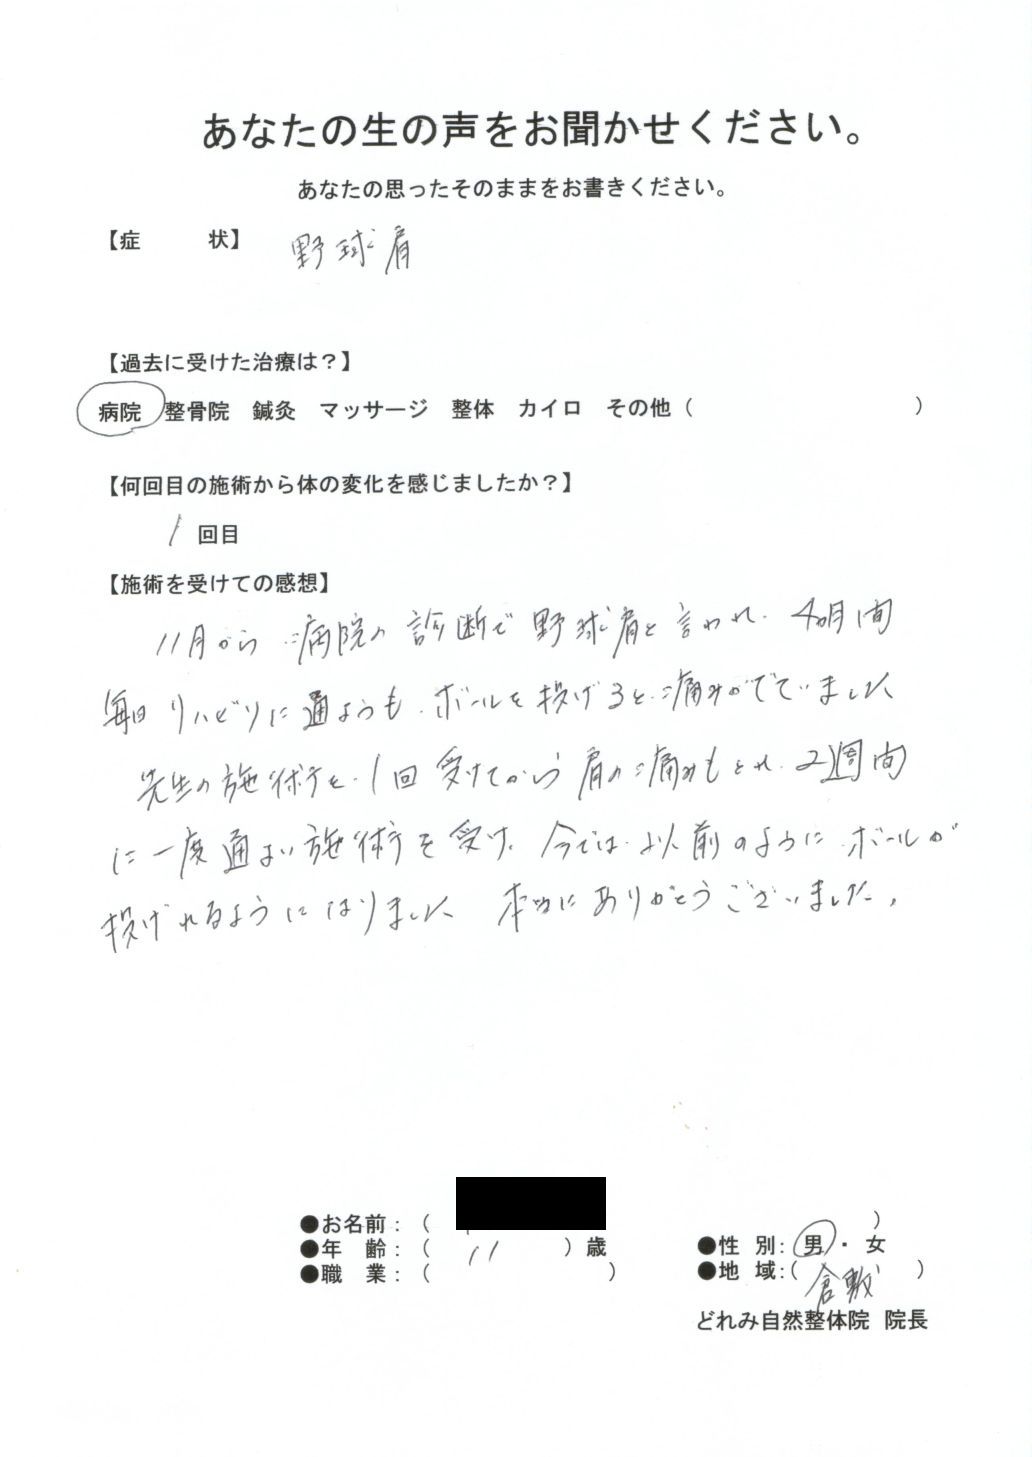 あなたの生の声をお聞かせください。
あなたの思ったそのままをお書きください。
【症　　状】 野球肩
【過去に受けた治療は？】
病院 整骨院 鍼灸 マッサージ 整体 カイロ その他（　　　）
【何回目の施術から体の変化を感じましたか？】
1 回目
【施術を受けての感想】
11月から病院の診断で野球肩と言われ、4ヵ月間
毎日リハビリに通ようも、ボールを投げると痛みがでていました
先生の施術を、1回受けてから肩の痛みもとれ、2週間
に一度通よい施術を受け、今では、以前のようにボールが
投げれるようになりました 本当にありがとうございました。
●お名前：（　　　）
●年　齢：（ 11 ）歳 ●性　別：男・女
●職　業：（　　　） ●地　域：（ 倉敷 ）
どれみ自然整体院 院長